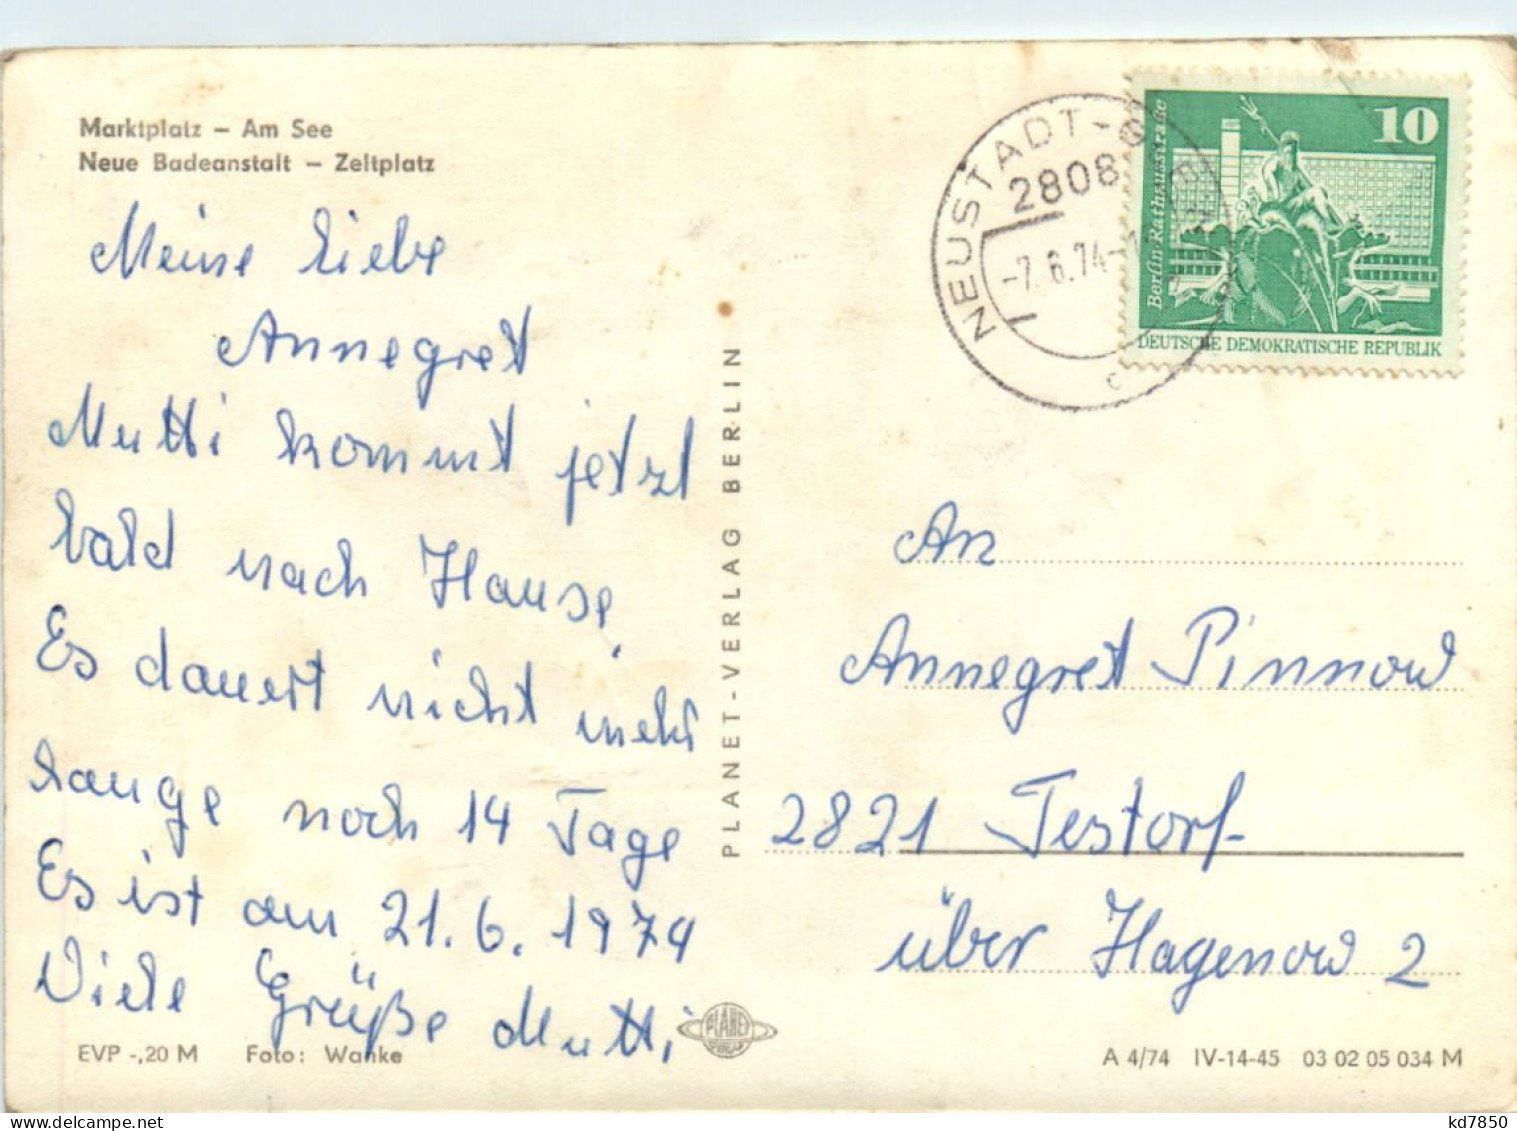 Marktplatz – Am See
Neue Badeanstalt – Zeltplatz
Meine Liebe
Annegret
Mutti kommt jetzt
bald nach Hause.
Es dauert nicht mehr
lange noch 14 Tage
Es ist am 21.6.1974
Viele Grüße Mutti
EVP -,20 M Foto: Wanke
PLANET-VERLAG BERLIN
PLANET
NEUSTADT-G
2808
-7.6.74-1
c
10
Berlin, Rathausstraße
DEUTSCHE DEMOKRATISCHE REPUBLIK
An
Annegret Pinnow
2821 Testorf
über Hagenow 2
A 4/74 IV-14-45 03 02 05 034 M
kd7850